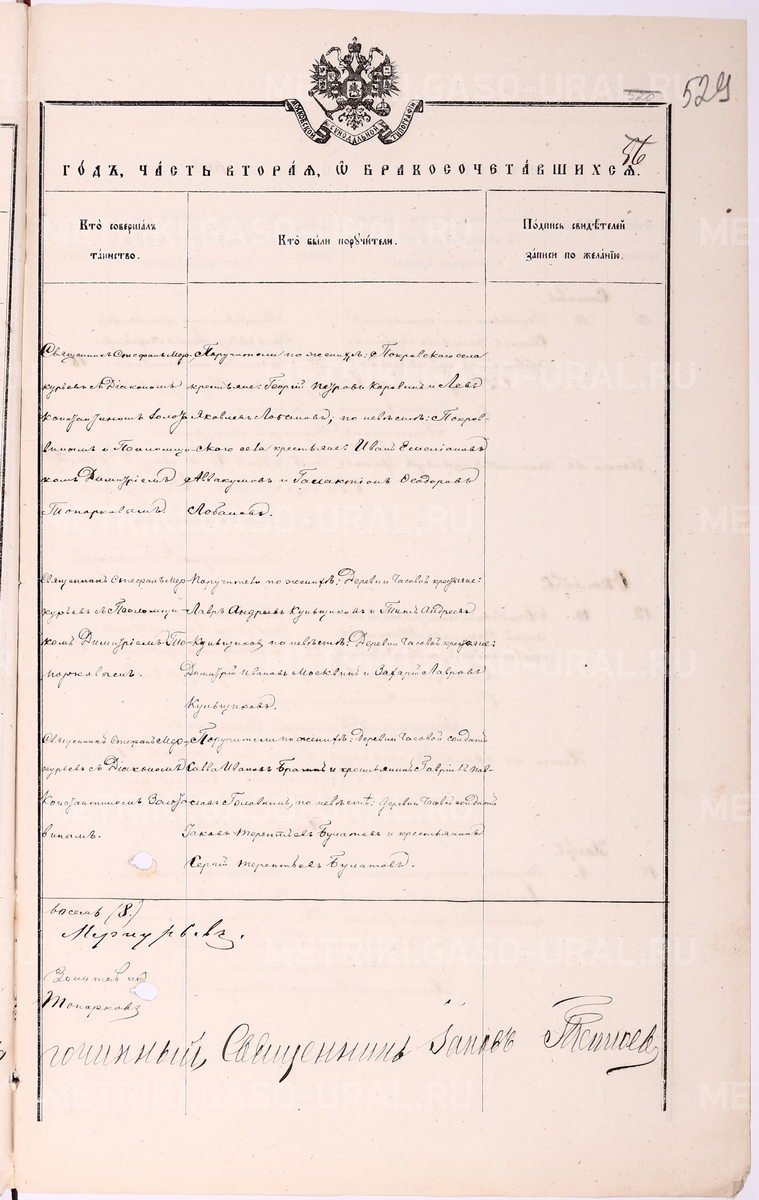 529
520
МОСКОВСКОЙ СѴНОДАЛЬНОЙ ТИПОГРАФІИ
56
ГОДЪ, ЧАСТЬ ВТОРАЯ, Ѡ БРАКОСОЧЕТАВШИХСЯ.
Кто совершалъ таинство.
Кто были поручители.
Подпись свидѣтелей записи по желанію.
Священникъ Стефанъ Мер-
курьевъ съ Діакономъ
Константиномъ Золота
винымъ и Псаломщи-
комъ Димитріемъ
Топорковымъ.
Поручители по женихѣ: Покровскаго села
крестьяне: Георгій Петровъ Коровинъ и Левъ
Яковлевъ Лобановъ, по невѣстѣ: Покров-
скаго села крестьяне: Иванъ Емельяновъ
Аввакумовъ и Галактіонъ Ѳеодоровъ
Лобановъ.
Священникъ Стефанъ Мер-
курьевъ съ Псаломщи-
комъ Димитріемъ То-
порковымъ.
Поручители по женихѣ: Деревни Часовой крестьяне:
Лавръ Андреевъ Кунщиковъ и Титъ Андреевъ
Кунщиковъ по невѣстѣ: Деревни Часовой крестьяне:
Димитрій Ивановъ Москвинъ и Захарій Лавровъ
Кунщиковъ.
Священникъ Стефанъ Мер-
курьевъ съ Діакономъ
Константиномъ Золота
винымъ.
Поручители по женихѣ: Деревни Часовой солдатъ
Савва Ивановъ и крестьянинъ Гавріилъ
Головинъ, по невѣстѣ: Деревни Часовой солдатъ
Іаковъ Терентьевъ Булатовъ и крестьянинъ
Сергій Терентьевъ Булатовъ.
восемь (8.)
Меркурьевъ.
Золотавинъ
Топорковъ
гочинный Священникъ Іаковъ
METRIKI.GASO-URAL.RU